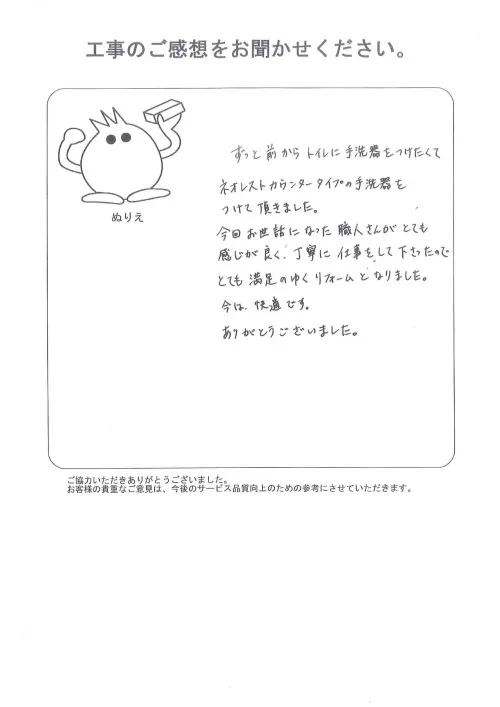 工事のご感想をお聞かせください。
ぬりえ
ずっと前からトイレに手洗器をつけたくて
ネオレストカウンタータイプの手洗器を
つけて頂きました。
今回お世話になった職人さんがとても
感じが良く、丁寧に仕事をして下さったので
とても満足のゆくリフォームとなりました。
今は、快適です。
ありがとうございました。
ご協力いただきありがとうございました。
お客様の貴重なご意見は、今後のサービス品質向上のための参考にさせていただきます。